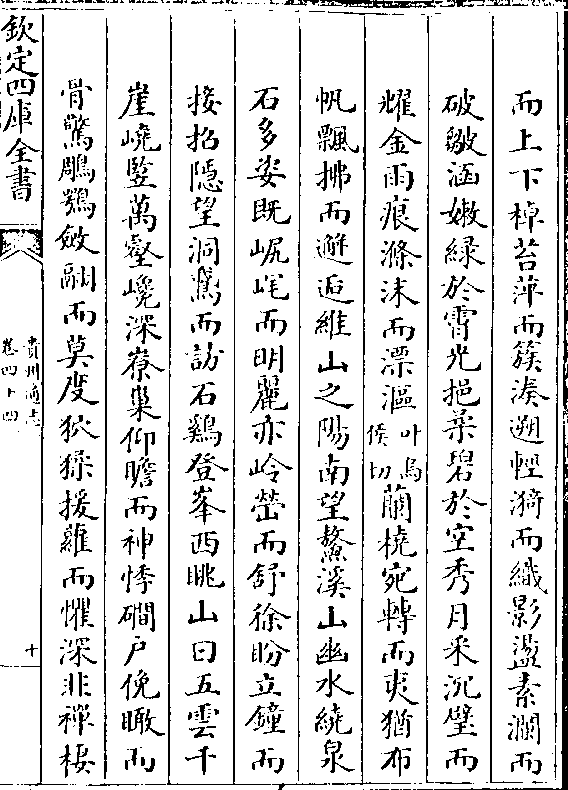 而上下棹苔萍而簇湊遡輕漪而織影盪素瀾而
破皺涵嫩緑於霄光挹柔碧於空秀月采沉璧而
耀金雨痕滌沫而漂漚叶烏侯切蘭橈宛轉而夷猶布
帆飄拂而邂逅維山之陽南望鰲溪山幽水繞泉
石多姿既岏崺而明麗亦岭嵤而舒徐盼立鐘而
接招隱望洞鶱而訪石鷄登峯西眺山曰五雲千
崖嶢竪萬壑巉深寮巢仰瞻而神悸磵户俛瞰而
骨驚鵰鶚斂翮而莫度狖猱援蘿而懼深非禪棲
欽定四庫全書
貴州通志
卷四十四
十